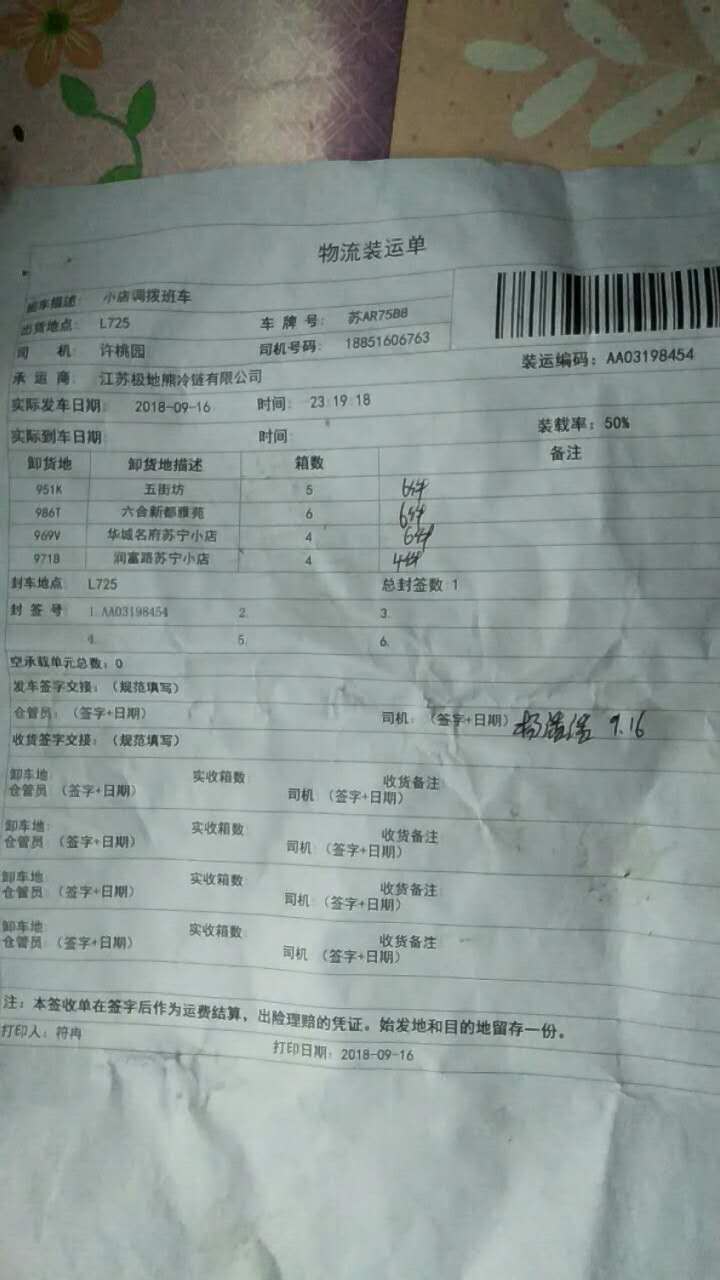 物流装运单
装车描述: 小店调拨班车
出货地点: L725 车 牌 号: 苏AR75B8
司 机: 许桃园 司机号码: 18851606763
装运编码: AA03198454
承 运 商: 江苏极地熊冷链有限公司
实际发车日期: 2018-09-16 时间: 23:19:18
装载率: 50%
实际到车日期: 时间:
卸货地 卸货地描述 箱数 备注
951K 五街坊 5 6件
986T 六合新都雅苑 6 6件
969V 华城名府苏宁小店 4 6件
971B 润富路苏宁小店 4 4件
封车地点: L725 总封签数 1
封 签 号: 1.AA03198454 2. 3.
4. 5. 6.
空承载单元总数: 0
发车签字交接: (规范填写)
仓管员: (签字+日期) 司机: (签字+日期) 9.16
收货签字交接: (规范填写)
卸车地: 实收箱数 收货备注
仓管员 (签字+日期) 司机 (签字+日期)
卸车地: 实收箱数 收货备注
仓管员 (签字+日期) 司机 (签字+日期)
卸车地: 实收箱数 收货备注
仓管员 (签字+日期) 司机 (签字+日期)
卸车地: 实收箱数 收货备注
仓管员 (签字+日期) 司机 (签字+日期)
注: 本签收单在签字后作为运费结算, 出险理赔的凭证。始发地和目的地留存一份。
打印人: 符冉 打印日期: 2018-09-16